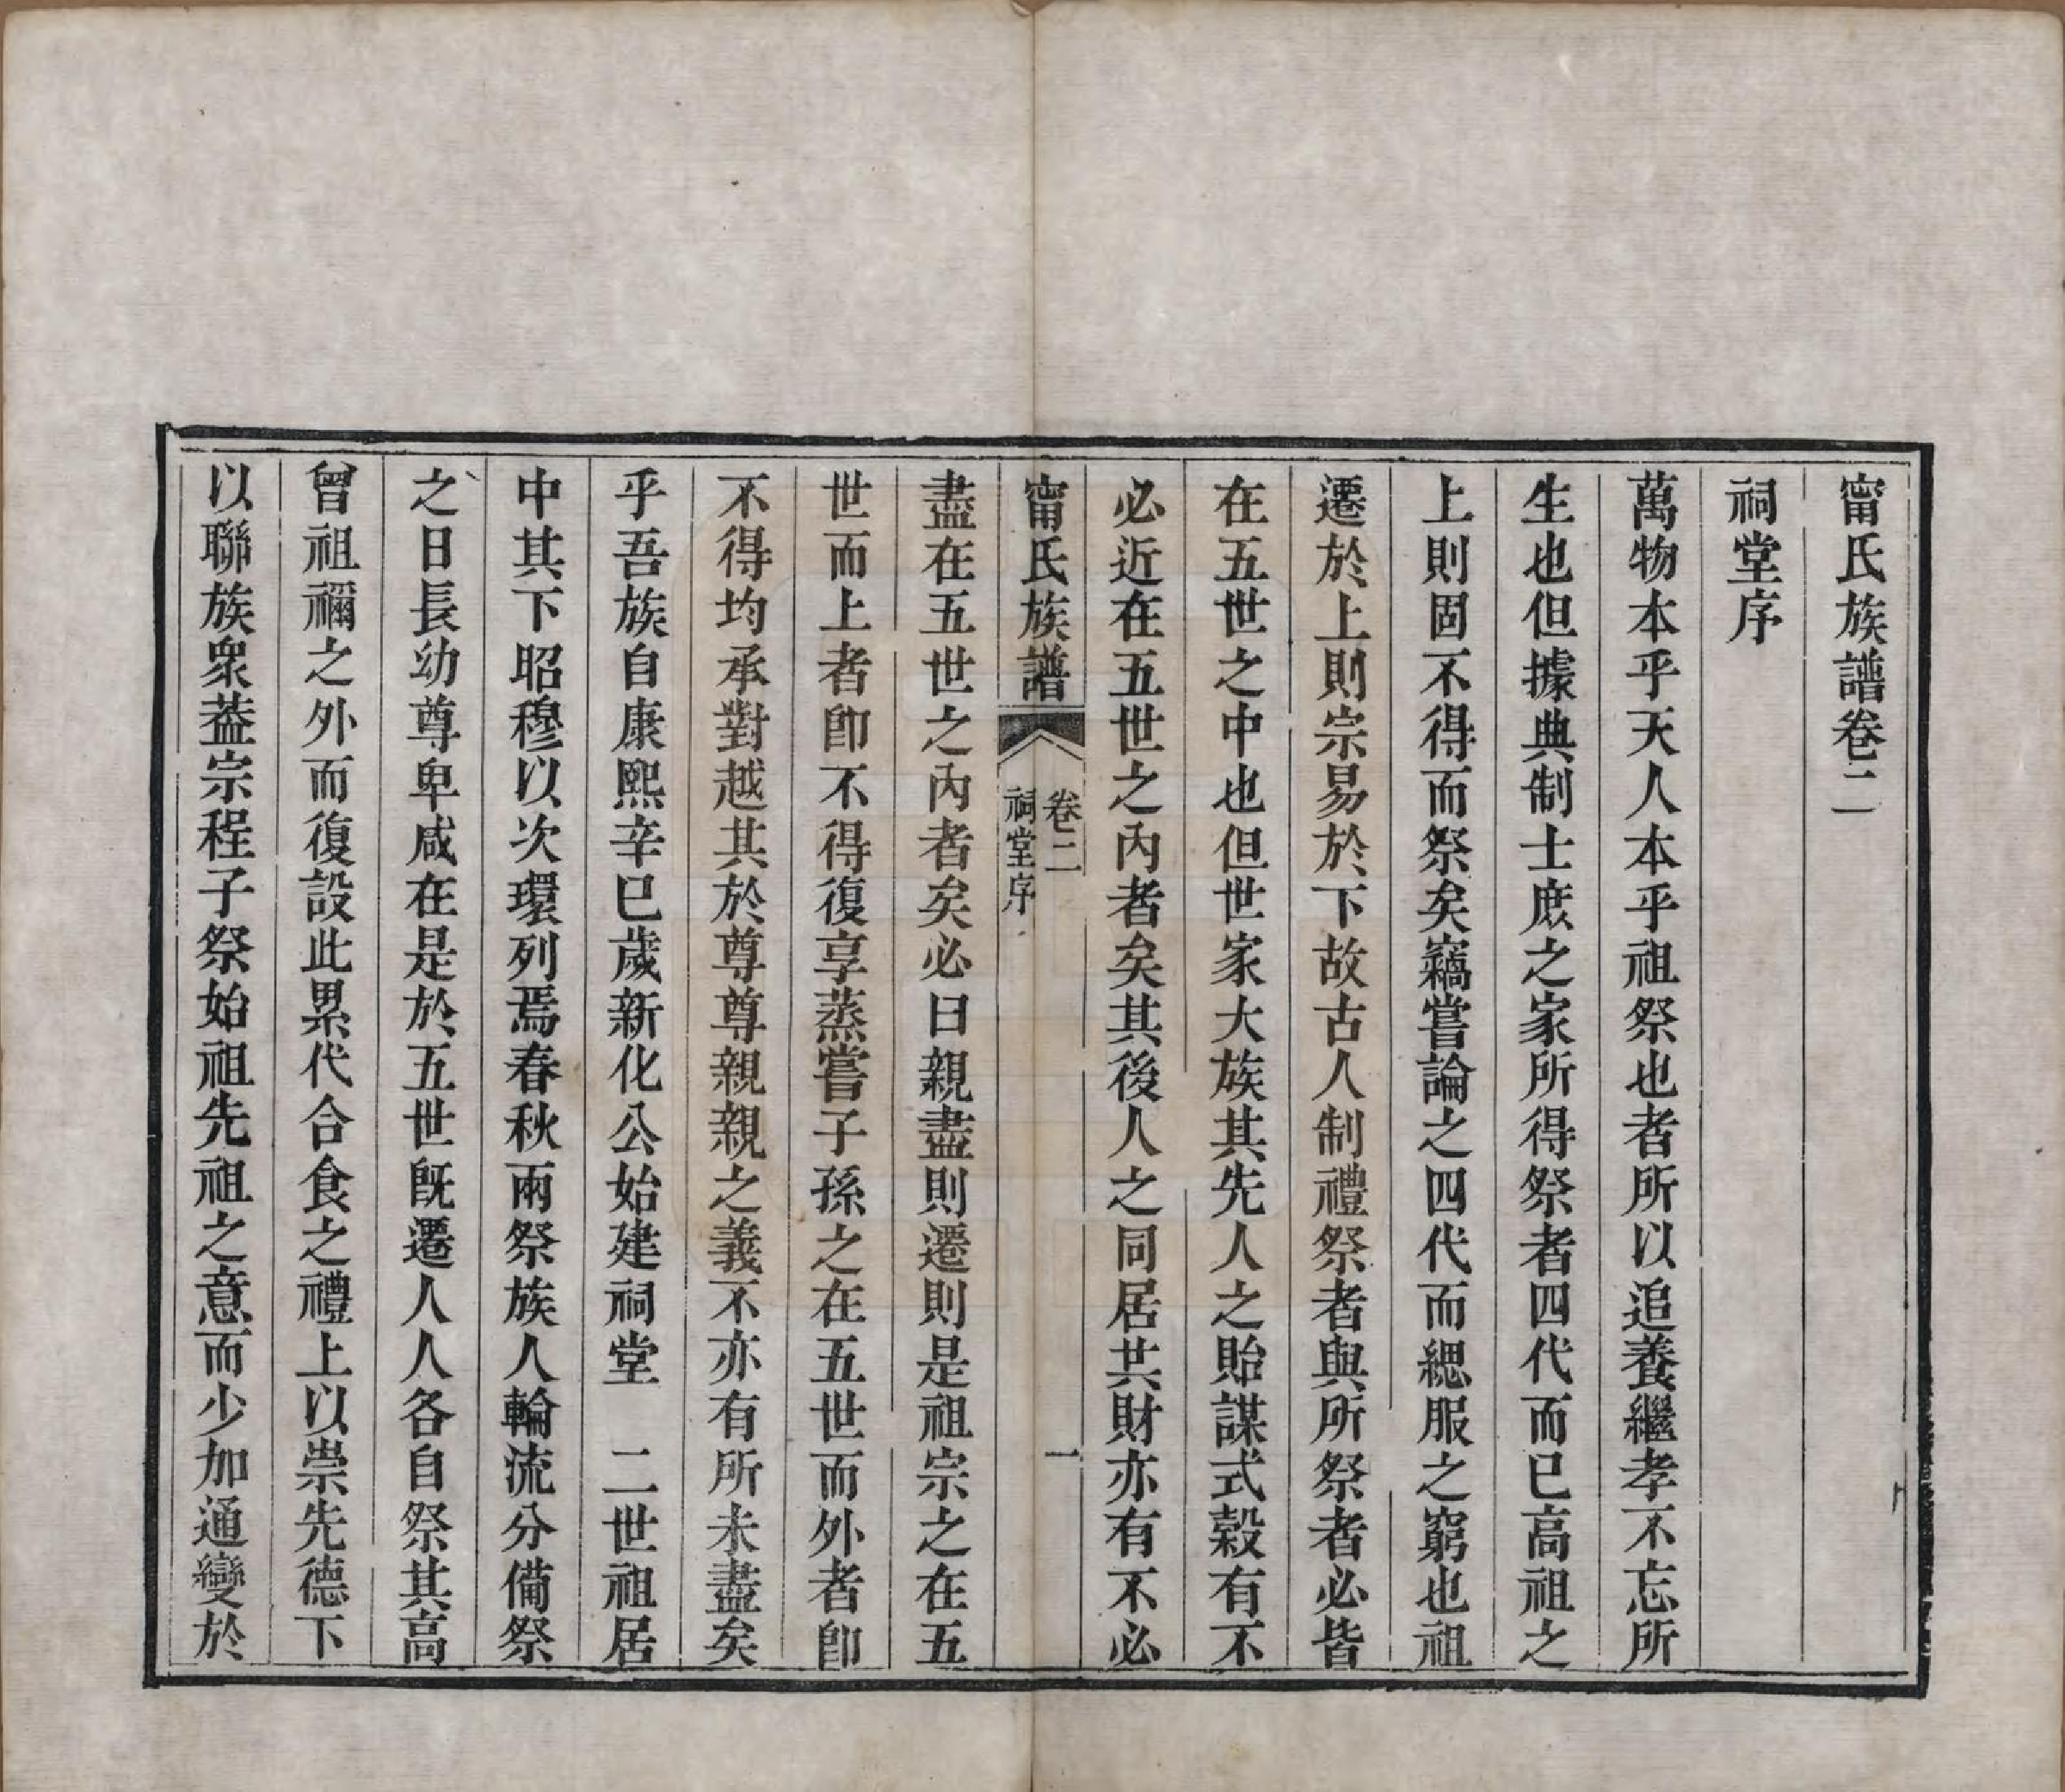 甯氏族譜卷二
祠堂序
萬物本乎天人本乎祖祭也者所以追養繼孝不忘所
生也但據典制士庶之家所得祭者四代而已高祖之
上則固不得而祭矣竊嘗論之四代而緦服之窮也祖
遷於上則宗易於下故古人制禮祭者與所祭者必皆
在五世之中也但世家大族其先人之貽謀式穀有不
必近在五世之內者矣其後人之同居共財亦有不必
甯氏族譜
卷二
祠堂序
一
盡在五世之內者矣必曰親盡則遷則是祖宗之在五
世而上者卽不得復享蒸嘗子孫之在五世而外者卽
不得均承對越其於尊尊親親之義不亦有所未盡矣
乎吾族自康熙辛巳歲新化公始建祠堂　二世祖居
中其下昭穆以次環列焉春秋兩祭族人輪流分備祭
之日長幼尊卑咸在是於五世旣遷人人各自祭其高
曾祖禰之外而復設此累代合食之禮上以崇先德下
以聯族衆葢宗程子祭始祖先祖之意而少加通變於